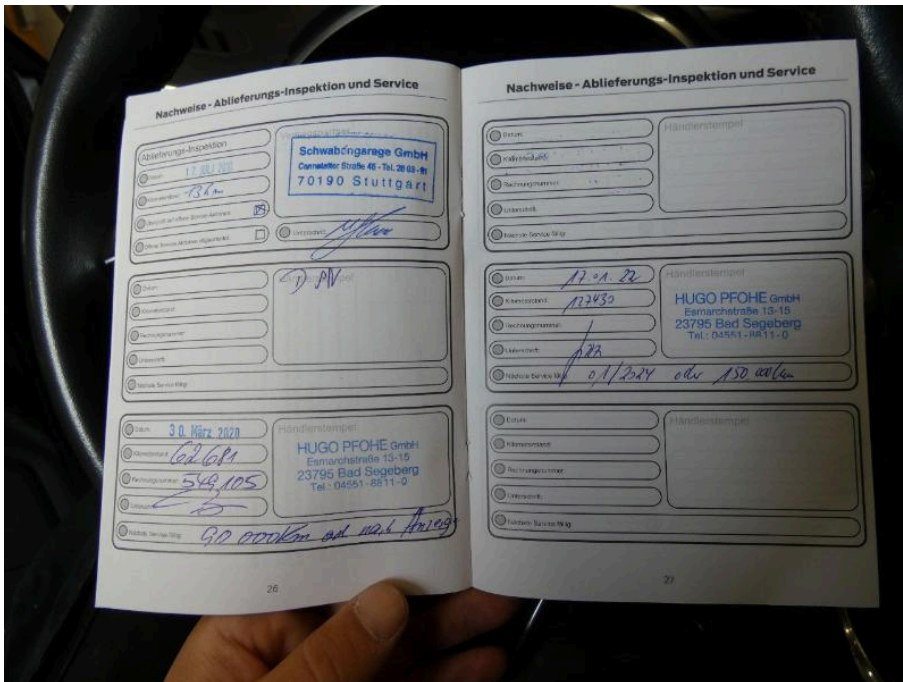 Nachweise - Ablieferungs-Inspektion und Service
Ablieferungs-Inspektion
Datum:
Kilometerstand: 13 km
Schwabengarage GmbH
Cannstatter Straße 46 - Tel. 28 03 - 91
70190 Stuttgart
Unterschrift:
Datum:
Kilometerstand:
Rechnungsnummer:
Unterschrift:
Nächste Service fällig:
Händlerstempel
Datum: 30. März 2020
Kilometerstand: 62681
Rechnungsnummer: 549,105
Unterschrift:
Nächste Service fällig: 90 000km
Händlerstempel
HUGO PFOHE GmbH
Esmarchstraße 13-15
23795 Bad Segeberg
Tel.: 04551-8811-0
26
Nachweise - Ablieferungs-Inspektion und Service
Datum:
Kilometerstand:
Rechnungsnummer:
Unterschrift:
Nächste Service fällig:
Händlerstempel
Datum: 17.01.22
Kilometerstand: 127430
Rechnungsnummer:
Unterschrift:
Nächste Service fällig: 01/2024 oder 150 000km
Händlerstempel
HUGO PFOHE GmbH
Esmarchstraße 13-15
23795 Bad Segeberg
Tel.: 04551-8811-0
Datum:
Kilometerstand:
Rechnungsnummer:
Unterschrift:
Nächste Service fällig:
Händlerstempel
27